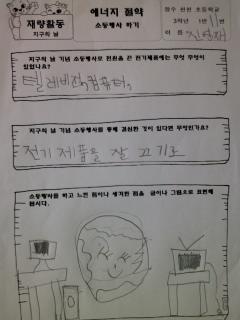 재량활동
지구의 날
에너지 절약
소등행사 하기
3학년 1반 11
이름
지구의 날 기념 소등행사로 전원을 끈 전기제품에는 무엇 무엇이
있었나요?
텔레비전, 컴퓨터,
지구의 날 기념 소등행사를 통해 결심한 것이 있다면 무엇인가요?
전기 제품을 잘 끄기로
소등행사를 하고 느낀 점이나 생각한 점을 글이나 그림으로 표현해
봅시다.